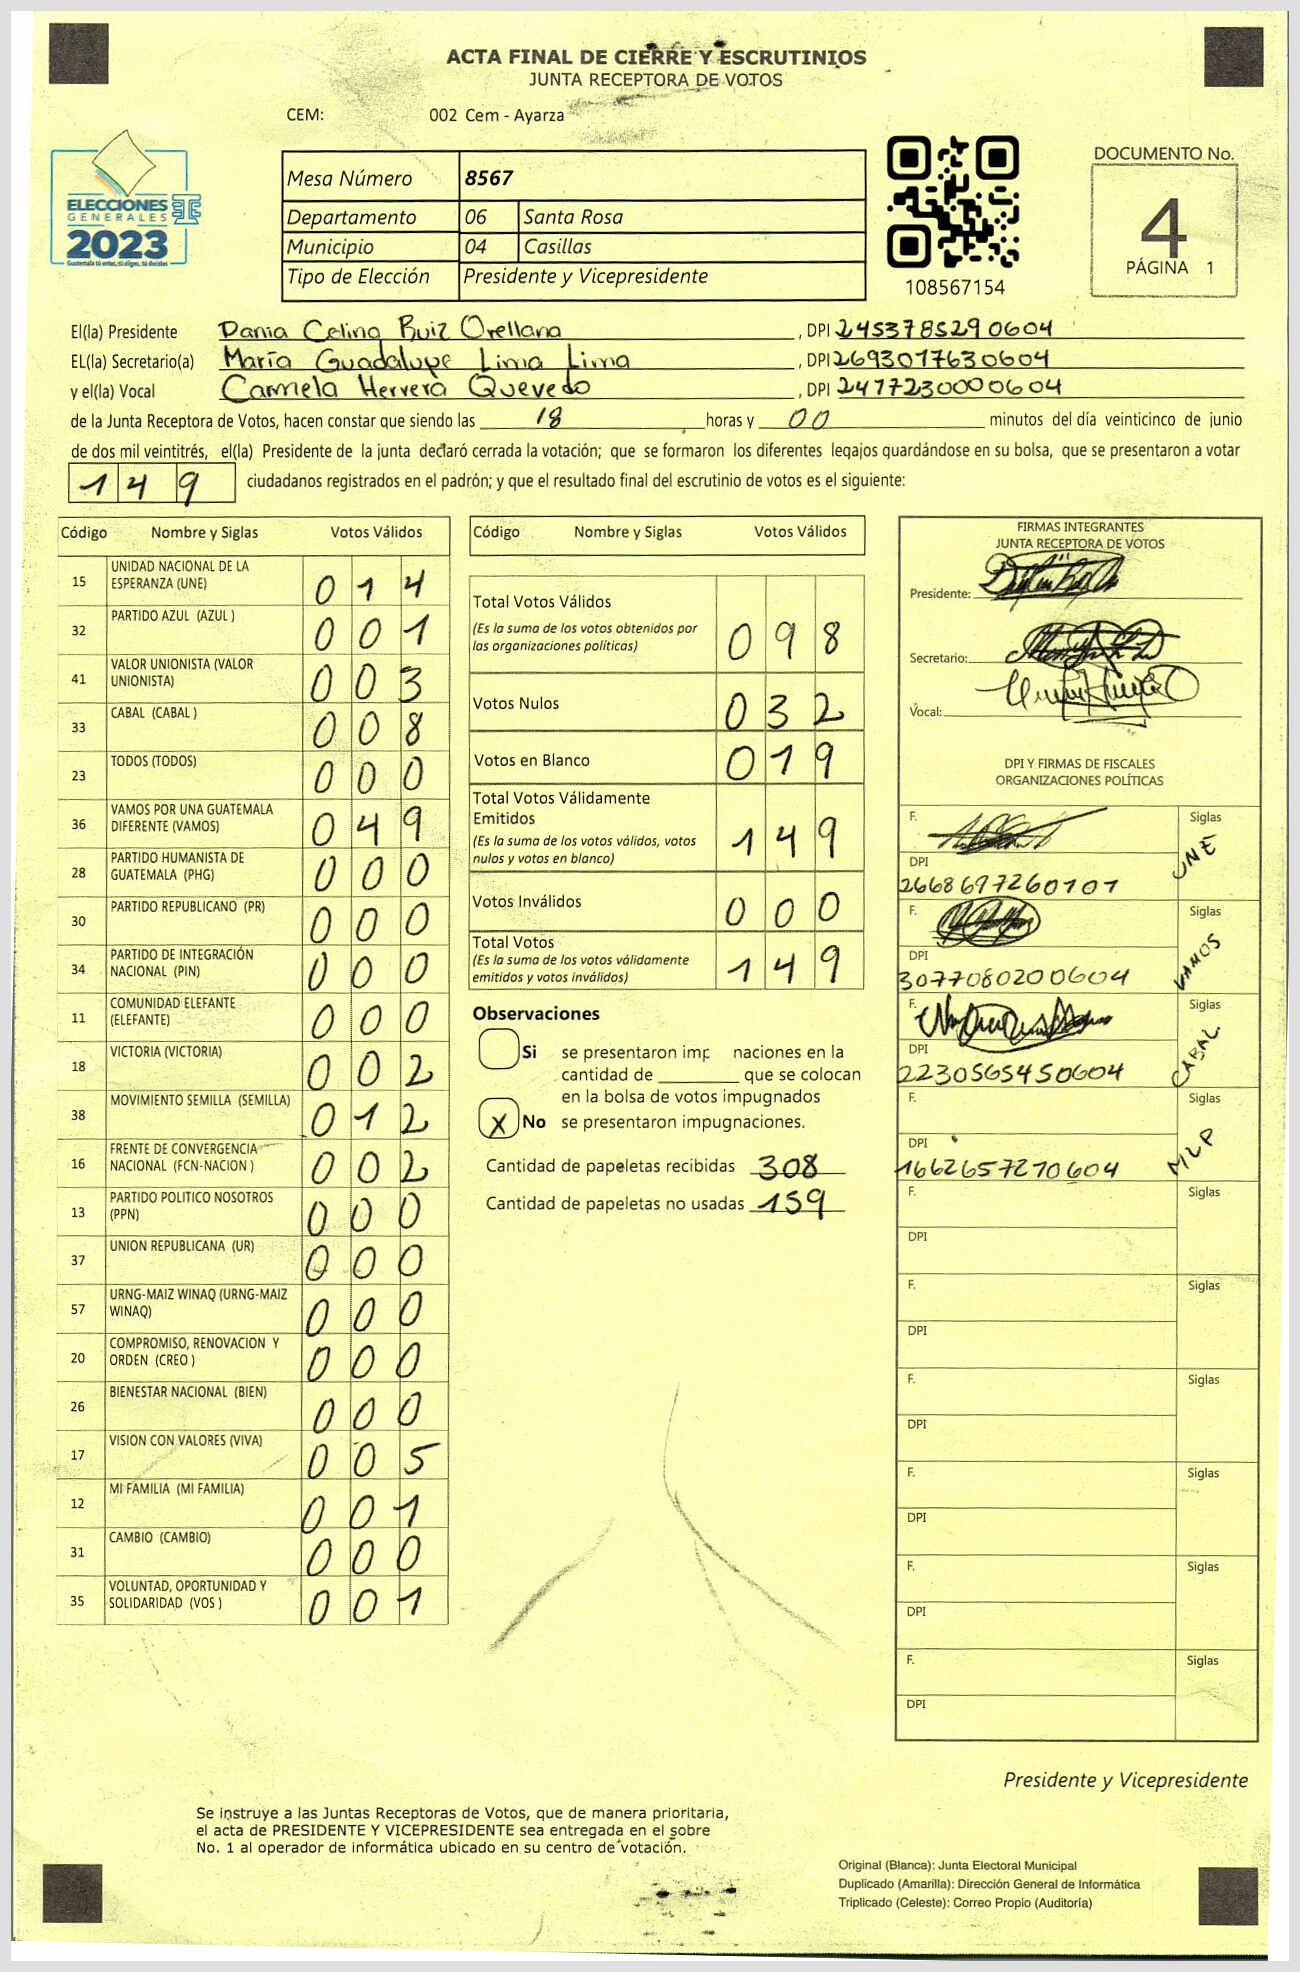 ACTA FINAL DE CIERRE Y ESCRUTINIOS
JUNTA RECEPTORA DE VOTOS
CEM: 002 Cem - Ayarza
ELECCIONES
GENERALES
2023
Mesa Número 8567
Departamento 06 Santa Rosa
Municipio 04 Casillas
Tipo de Elección Presidente y Vicepresidente
108567154
DOCUMENTO No.
4
PÁGINA 1
El(la) Presidente Dania Celina Ruiz Orellana, DPI 2453785290604
EL(la) Secretario(a) María Guadalupe Lima Lima, DPI 2693017630604
y el(la) Vocal Carmela Herrera Quevedo, DPI 2477230000604
de la Junta Receptora de Votos, hacen constar que siendo las 18 horas y 00 minutos del día veinticinco de junio
de dos mil veintitrés, el(la) Presidente de la junta declaró cerrada la votación; que se formaron los diferentes legajos guardándose en su bolsa, que se presentaron a votar
149 ciudadanos registrados en el padrón; y que el resultado final del escrutinio de votos es el siguiente:
Código Nombre y Siglas Votos Válidos
15 UNIDAD NACIONAL DE LA ESPERANZA (UNE) 014
32 PARTIDO AZUL (AZUL ) 001
41 VALOR UNIONISTA (VALOR UNIONISTA) 003
33 CABAL (CABAL ) 008
23 TODOS (TODOS) 000
36 VAMOS POR UNA GUATEMALA DIFERENTE (VAMOS) 049
28 PARTIDO HUMANISTA DE GUATEMALA (PHG) 000
30 PARTIDO REPUBLICANO (PR) 000
34 PARTIDO DE INTEGRACIÓN NACIONAL (PIN) 000
11 COMUNIDAD ELEFANTE (ELEFANTE) 000
18 VICTORIA (VICTORIA) 002
38 MOVIMIENTO SEMILLA (SEMILLA) 012
16 FRENTE DE CONVERGENCIA NACIONAL (FCN-NACION ) 002
13 PARTIDO POLITICO NOSOTROS (PPN) 000
37 UNION REPUBLICANA (UR) 000
57 URNG-MAIZ WINAQ (URNG-MAIZ WINAQ) 000
20 COMPROMISO, RENOVACION Y ORDEN (CREO ) 000
26 BIENESTAR NACIONAL (BIEN) 000
17 VISION CON VALORES (VIVA) 005
12 MI FAMILIA (MI FAMILIA) 001
31 CAMBIO (CAMBIO) 000
35 VOLUNTAD, OPORTUNIDAD Y SOLIDARIDAD (VOS ) 001
Código Nombre y Siglas Votos Válidos
Total Votos Válidos
(Es la suma de los votos obtenidos por
las organizaciones políticas) 098
Votos Nulos 032
Votos en Blanco 019
Total Votos Válidamente
Emitidos
(Es la suma de los votos válidos, votos
nulos y votos en blanco) 149
Votos Inválidos 000
Total Votos
(Es la suma de los votos válidamente
emitidos y votos inválidos) 149
Observaciones
Si se presentaron imp naciones en la
cantidad de ________ que se colocan
en la bolsa de votos impugnados
X No se presentaron impugnaciones.
Cantidad de papeletas recibidas 308
Cantidad de papeletas no usadas 159
FIRMAS INTEGRANTES
JUNTA RECEPTORA DE VOTOS
Presidente:
Secretario:
Vocal:
DPI Y FIRMAS DE FISCALES
ORGANIZACIONES POLÍTICAS
F. Siglas UNE
DPI
2668697260101
F. Siglas VAMOS
DPI
3077080200604
F. Siglas CABAL
DPI
2230565450604
F. Siglas MLP
DPI
1662657270604
F. Siglas
DPI
F. Siglas
DPI
F. Siglas
DPI
F. Siglas
DPI
F. Siglas
DPI
F. Siglas
DPI
Presidente y Vicepresidente
Se instruye a las Juntas Receptoras de Votos, que de manera prioritaria,
el acta de PRESIDENTE Y VICEPRESIDENTE sea entregada en el sobre
No. 1 al operador de informática ubicado en su centro de votación.
Original (Blanca): Junta Electoral Municipal
Duplicado (Amarilla): Dirección General de Informática
Triplicado (Celeste): Correo Propio (Auditoría)